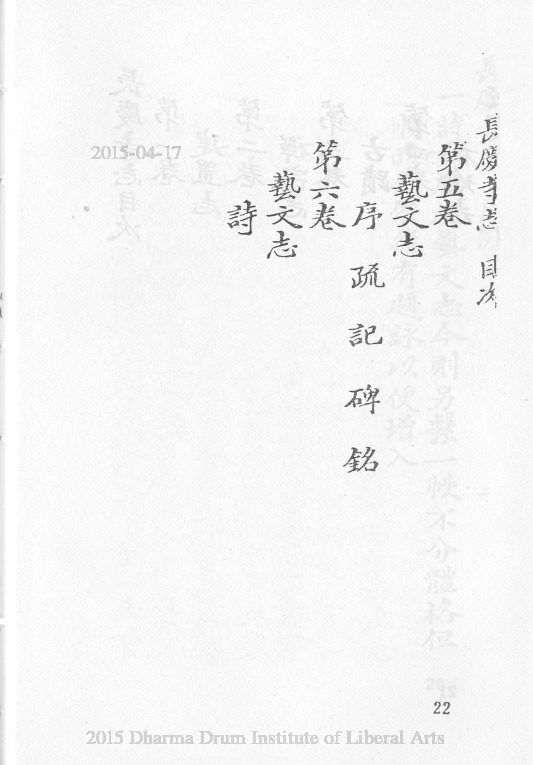 長慶寺志 目次
第五卷
藝文志
序 疏 記 碑 銘
第六卷
藝文志
詩
2015-04-17
22
2015 Dharma Drum Institute of Liberal Arts